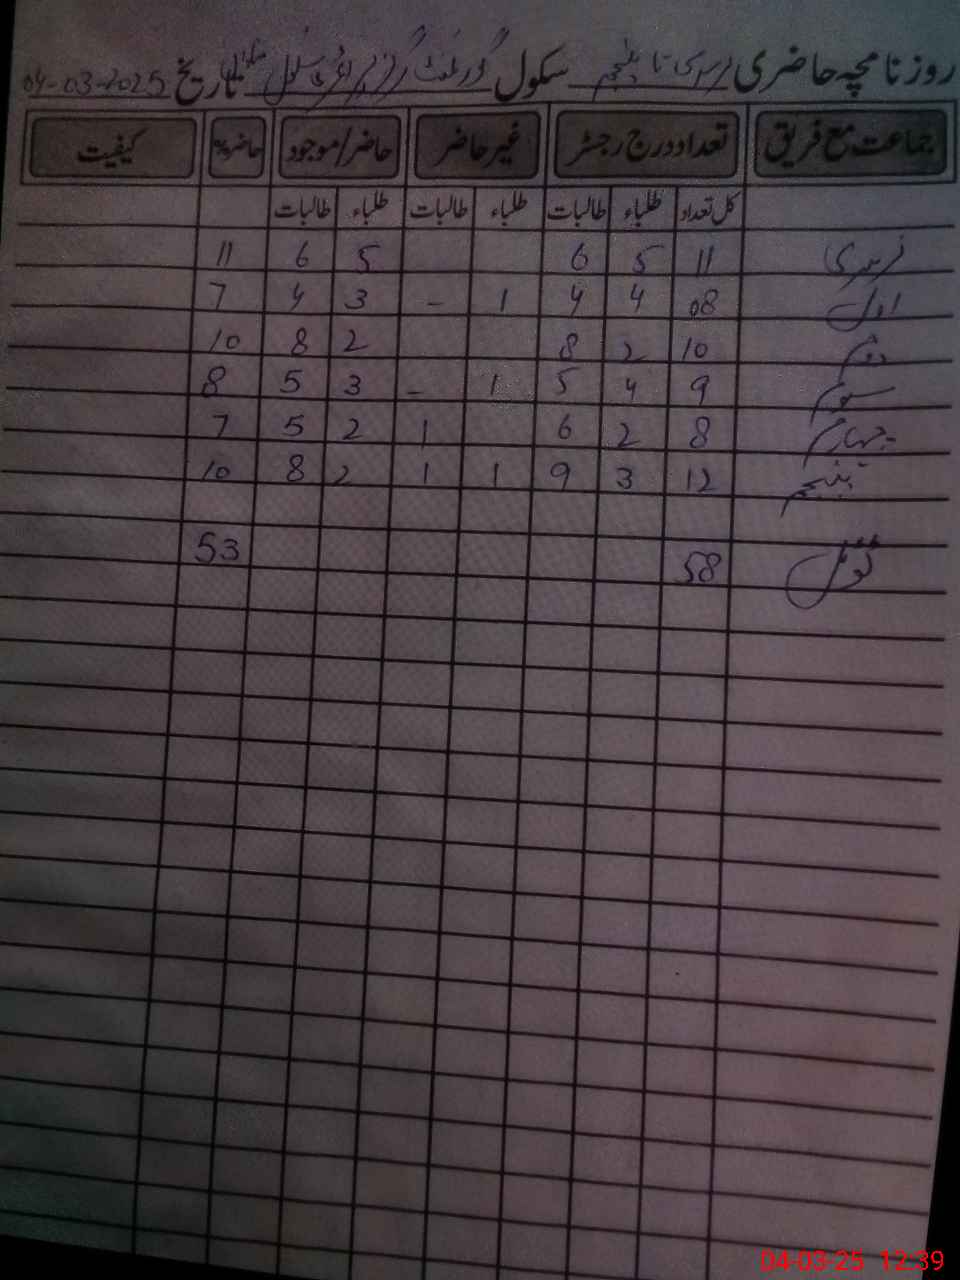 روزنامچہ حاضری نرسری تا پنجم سکول گورنمنٹ گرلز پرائمری سکول تاریخ 04-03-2025
جماعت مع فریق تعداد درج رجسٹر غیر حاضر حاضر/موجود حاضر% کیفیت
کل تعداد طلباء طالبات طلباء طالبات طلباء طالبات
نرسری 11 5 6 5 6 11
اول 08 4 4 1 - 3 4 7
دوم 10 2 8 2 8 10
سوم 9 4 5 1 - 3 5 8
چہارم 8 2 6 1 2 5 7
پنجم 12 3 9 1 1 2 8 10
ٹوٹل 58 53
04-03-25 12:39